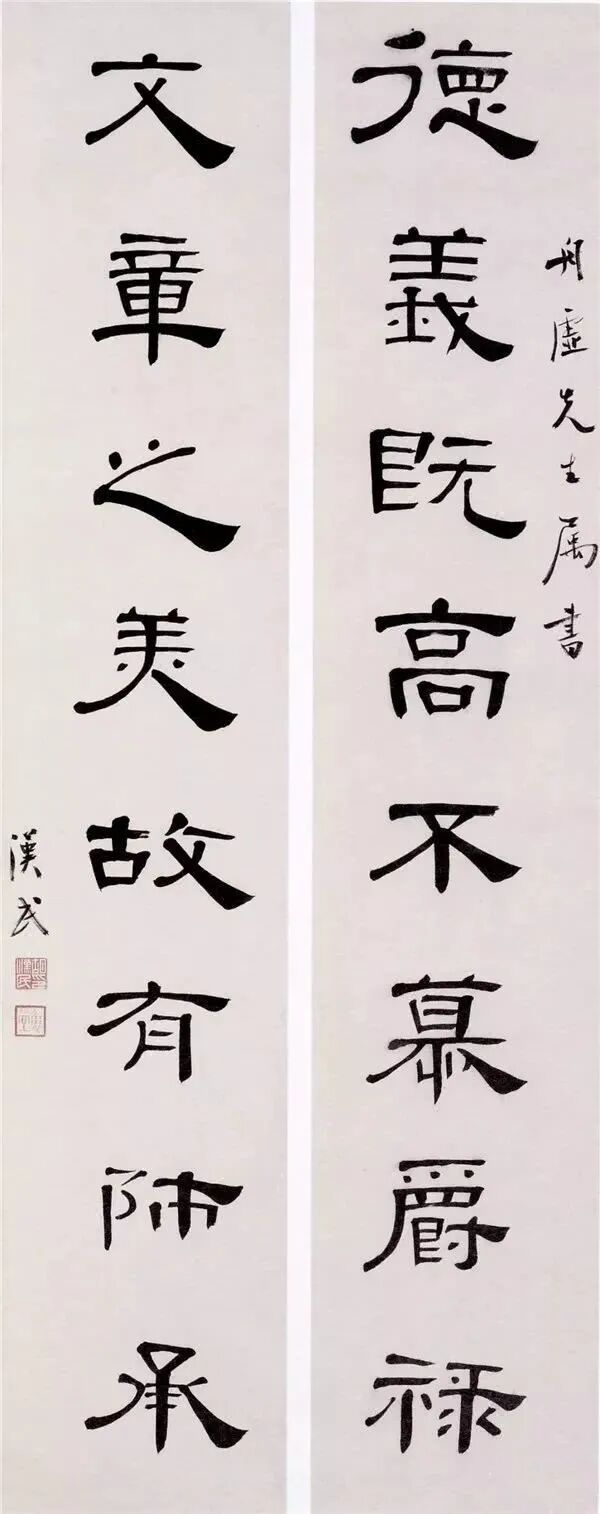 舟虛先生属書
德義既高不慕爵禄
文章之美故有師承
漢民